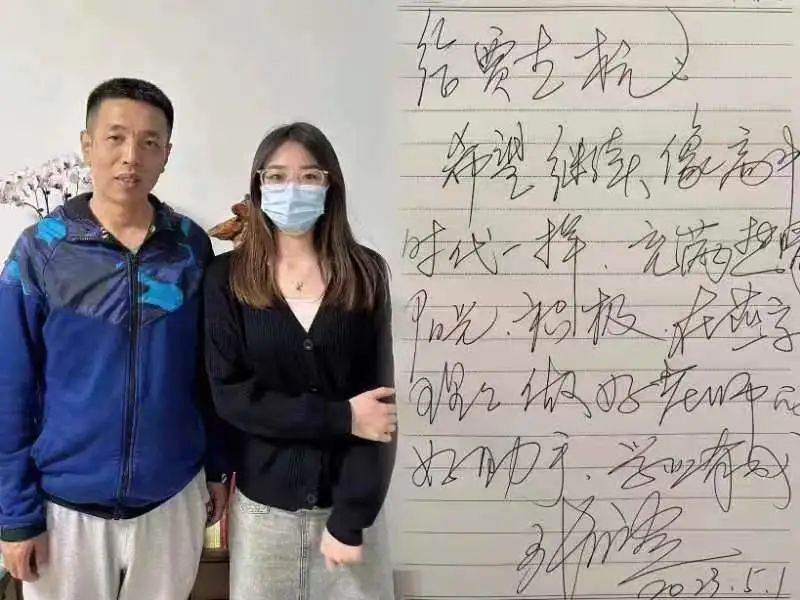 给贾杭
希望继续、像高中
时代一样.充满热情
阳光.积极.在燕京
理工做好老师的
好助手.学业有成
2023.5.1